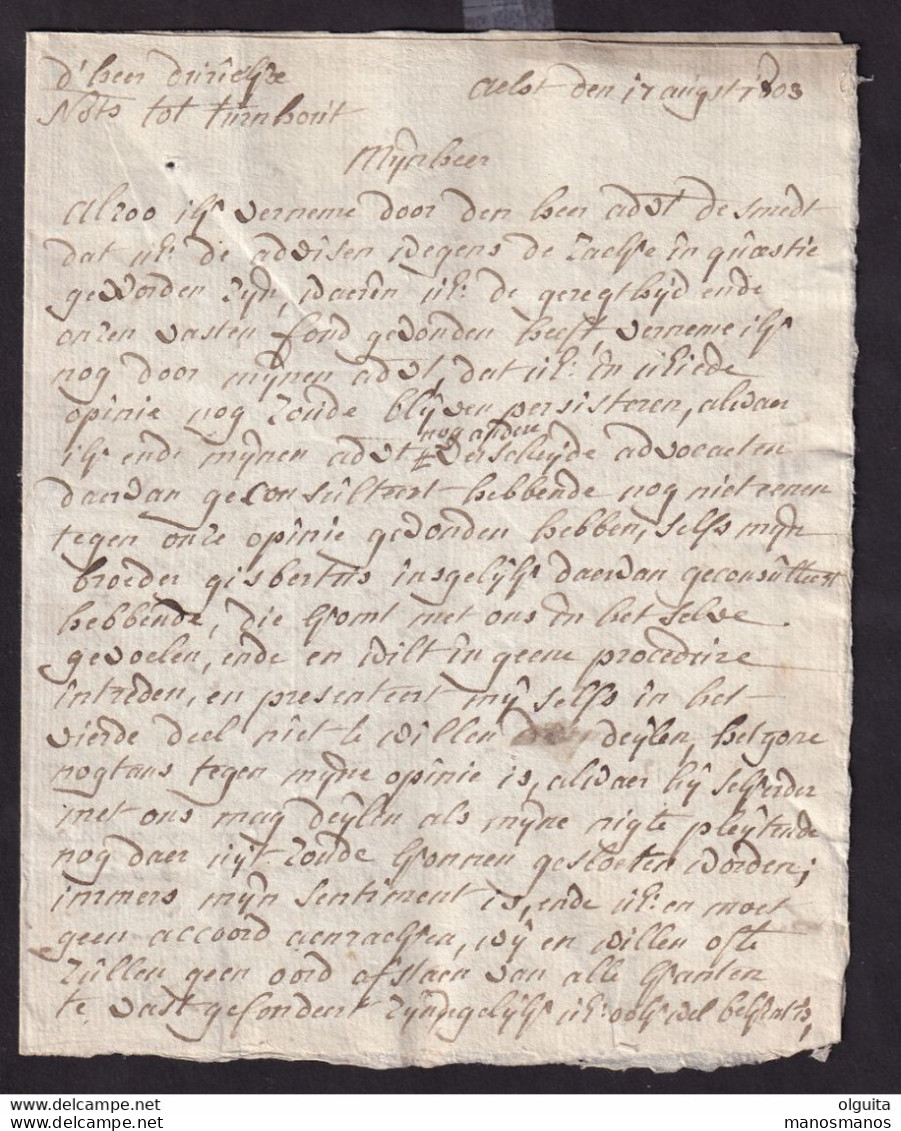 d'heer
Nots tot turnhout
Aelst den 17 augst 1803
Mijnheer
Alzoo ik verneme door den heer advt de smedt
dat ul: de advisen wegens de zaeke in quaestie
geworden zijn, waerin ul: de geregthijd ende
onzen vasten fond gevonden heeft, verneme ik
nog door mijnen advt, dat ul: in
opinie nog zoude blijven persisteren, alwaer
nog andere
ik ende mijnen advt verscheijde advocaeten
daervan geconsulteert hebbende nog niet eenen
tegen onze opinie gevonden hebben, selfs mijn
broeder gisbertus insgelijks daervan geconsulteert
hebbende, die komt met ons in het selve
gevoelen, ende en wilt in geene procedure
intreden, en presenteert mij selfs in het
vierde deel niet te willen deijlen, hetgone
nogtans tegen mijne opinie is, alwaer hij sekerder
met ons mag deijlen als mijne nigte pleijtende
nog daer uijt zoude konnen gesloeten worden;
immers mijn sentiment is, ende ul: en moet
geen accoord aenraeken, wij en willen ofte
zullen geen oord afstaen van alle kanten
te vast gefondeert zijnde gelijk ul: ook wel bekent is,
olguita
manosmanos